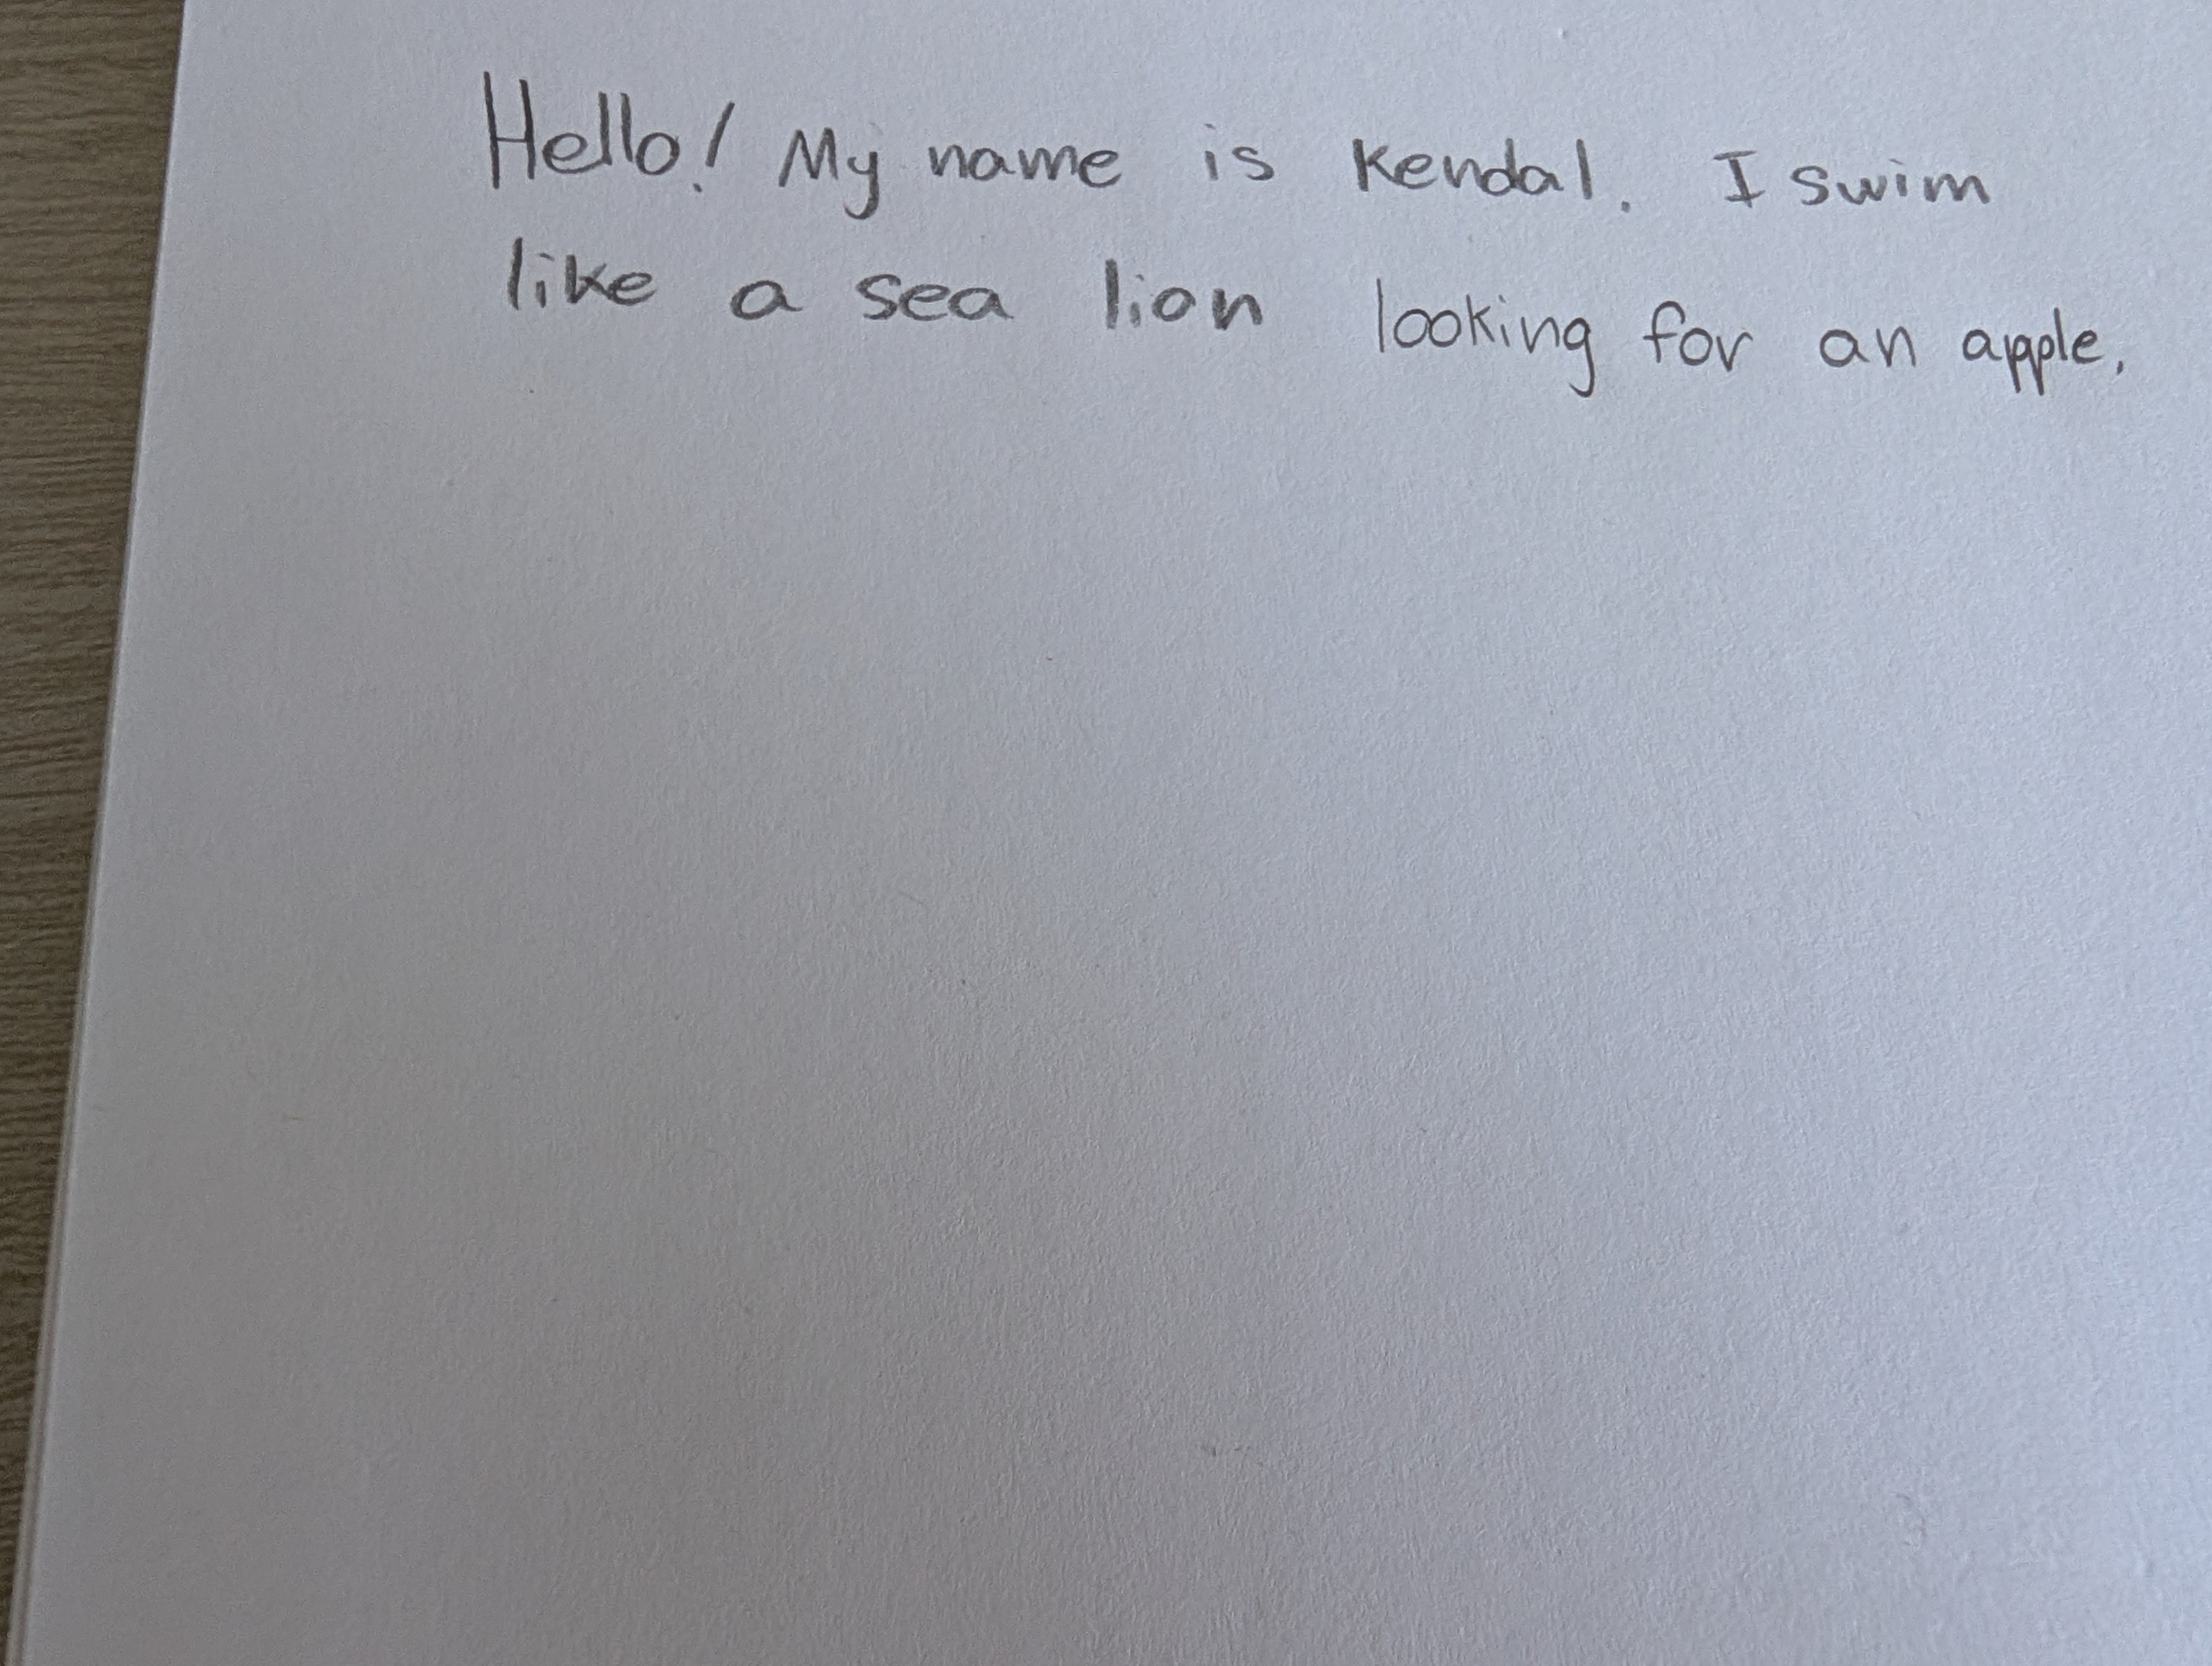 Hello! My name is Kendal. I swim
like a sea lion looking for an apple.